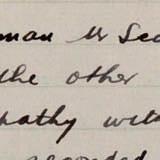 man Mr Sco
the other
pathy with